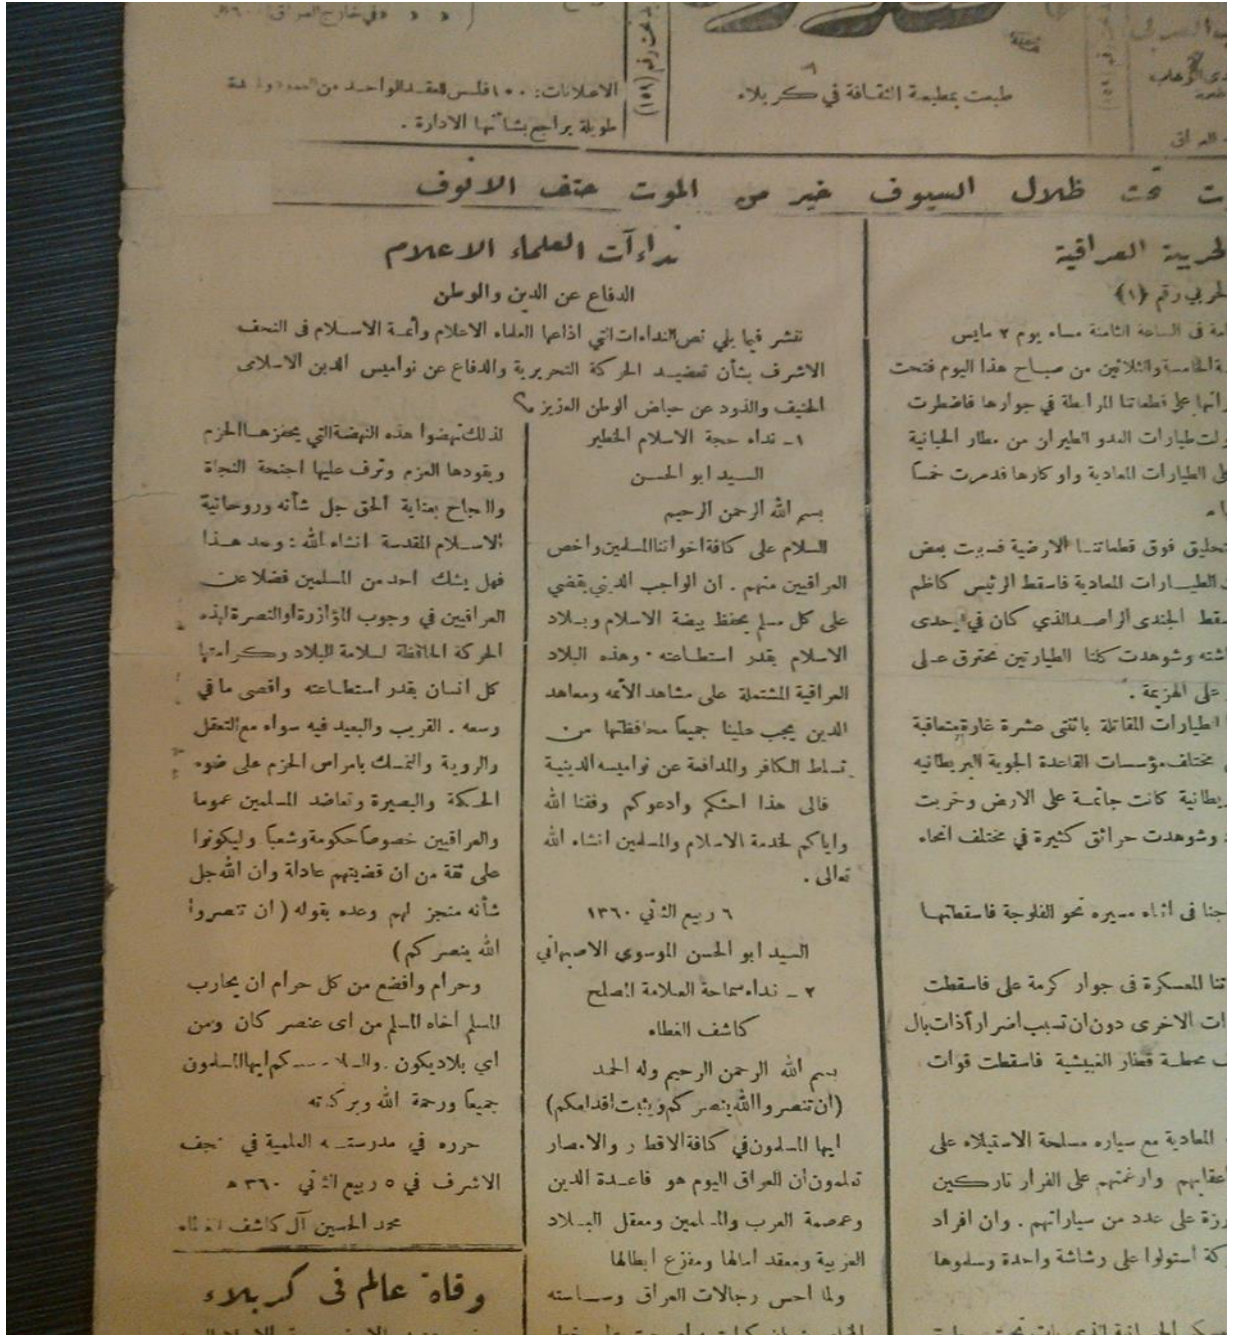 « « في خارج العراق
الاعلانات: ١٥٠ فلس للعقد الواحد من العمود واحدة
طويلة يراجع بشأنها الادارة .
(١٥٩)
طبعت بمطبعة الثقافة في كربلاء
تحت ظلال السيوف خير من الموت حتف الانوف
الحربية العراقية
رقم (١)
فى الساعة الثامنة مساء يوم ٢ مايس
الخامسة والثلاثين من صباح هذا اليوم فتحت
على قطعاتنا المرابطة في جوارها فاضطرت
طيارات العدو الطيران من مطار الحبانية
الطيارات المعادية واوكارها فدمرت خمسا
تحليق فوق قطعاتنا الارضية فسببت بعض
الطيارات المعادية فاسقط الرئيس كاظم
الجندى الراصد الذي كان في احدى
وشوهدت كلتا الطيارتين تحترق على
على الهزيمة .
الطيارات المقاتلة باثنتى عشرة غارة متعاقبة
مختلف مؤسسات القاعدة الجوية البريطانيه
كانت جاثمة على الارض وخربت
وشوهدت حرائق كثيرة في مختلف انحاء
فى اثناء مسيره نحو الفلوجة فاسقطتها
المعسكرة فى جوار كرمة على فاسقطت
الاخرى دون ان تسبب اضرارآ ذات بال
محطة قطار الغبيشية فاسقطت قوات
المعادية مع سياره مسلحة الاستيلاء على
اعقابهم وارغمتهم على الفرار تاركين
على عدد من سياراتهم . وان افراد
استولوا على رشاشة واحدة وسلموها
نداءآت العلماء الاعلام
الدفاع عن الدين والوطن
ننشر فيما يلي نص النداءات التي اذاعها العلماء الاعلام وأئمة الاسلام فى النجف
الاشرف بشأن تعضيد الحركة التحريرية والدفاع عن نواميس الدين الاسلامى
الحنيف والذود عن حياض الوطن العزيز
١ـ نداء حجة الاسلام الخطير
السيد ابو الحسن
بسم الله الرحمن الرحيم
السلام على كافة اخواننا المسلمين واخص
العراقيين منهم . ان الواجب الديني يقضي
على كل مسلم بحفظ بيضة الاسلام وبلاد
الاسلام بقدر استطاعته . وهذه البلاد
العراقية المشتملة على مشاهد الأئمه ومعاهد
الدين يجب علينا جميعاً محافظتها من
تسلط الكافر والمدافعة عن نواميسه الدينية
فالى هذا احثكم وادعوكم وفقنا الله
واياكم لخدمة الاسلام والمسلمين انشاء الله
تعالى .
٦ ربيع الثاني ١٣٦٠
السيد ابو الحسن الموسوى الاصبهاني
٢ ـ نداء سماحة العلامة المصلح
كاشف الغطاء
بسم الله الرحمن الرحيم وله الحمد
(ان تنصروا الله ينصركم ويثبت اقدامكم)
ايها المسلمون في كافة الاقطار والامصار
تعلمون ان العراق اليوم هو قاعدة الدين
وعصمة العرب والمسلمين ومعقل البلاد
العربية ومعقد امالها ومفزع ابطالها
ولما احس رجالات العراق وساسته
لذلك نهضوا هذه النهضة التي يحفزها الحزم
ويقودها العزم وترف عليها اجنحة النجاة
والنجاح بعناية الحق جل شأنه وروحانية
الاسلام المقدسة انشاء الله : وبعد هذا
فهل يشك احد من المسلمين فضلا عن
العراقيين في وجوب المؤازرة والنصرة لهذه
الحركة الحافظة لسلامة البلاد وكرامتها
كل انسان بقدر استطاعته واقصى ما في
وسعه . القريب والبعيد فيه سواء مع التعقل
والروية والتمسك بامراس الحزم على ضوء
الحكمة والبصيرة وتعاضد المسلمين عموما
والعراقيين خصوصاً حكومة وشعباً وليكونوا
على ثقة من ان قضيتهم عادلة وان الله جل
شأنه منجز لهم وعده بقوله ( ان تنصروا
الله ينصركم )
وحرام وافضع من كل حرام ان يحارب
المسلم أخاه المسلم من اى عنصر كان ومن
اي بلاد يكون . والسلام عليكم ايها المسلمون
جميعاً ورحمة الله وبركاته
حرره في مدرسته العلمية في نجف
الاشرف في ٥ ربيع الثاني ٣٦٠ ه
محمد الحسين آل كاشف الغطاء
وفاة عالم فى كربلاء